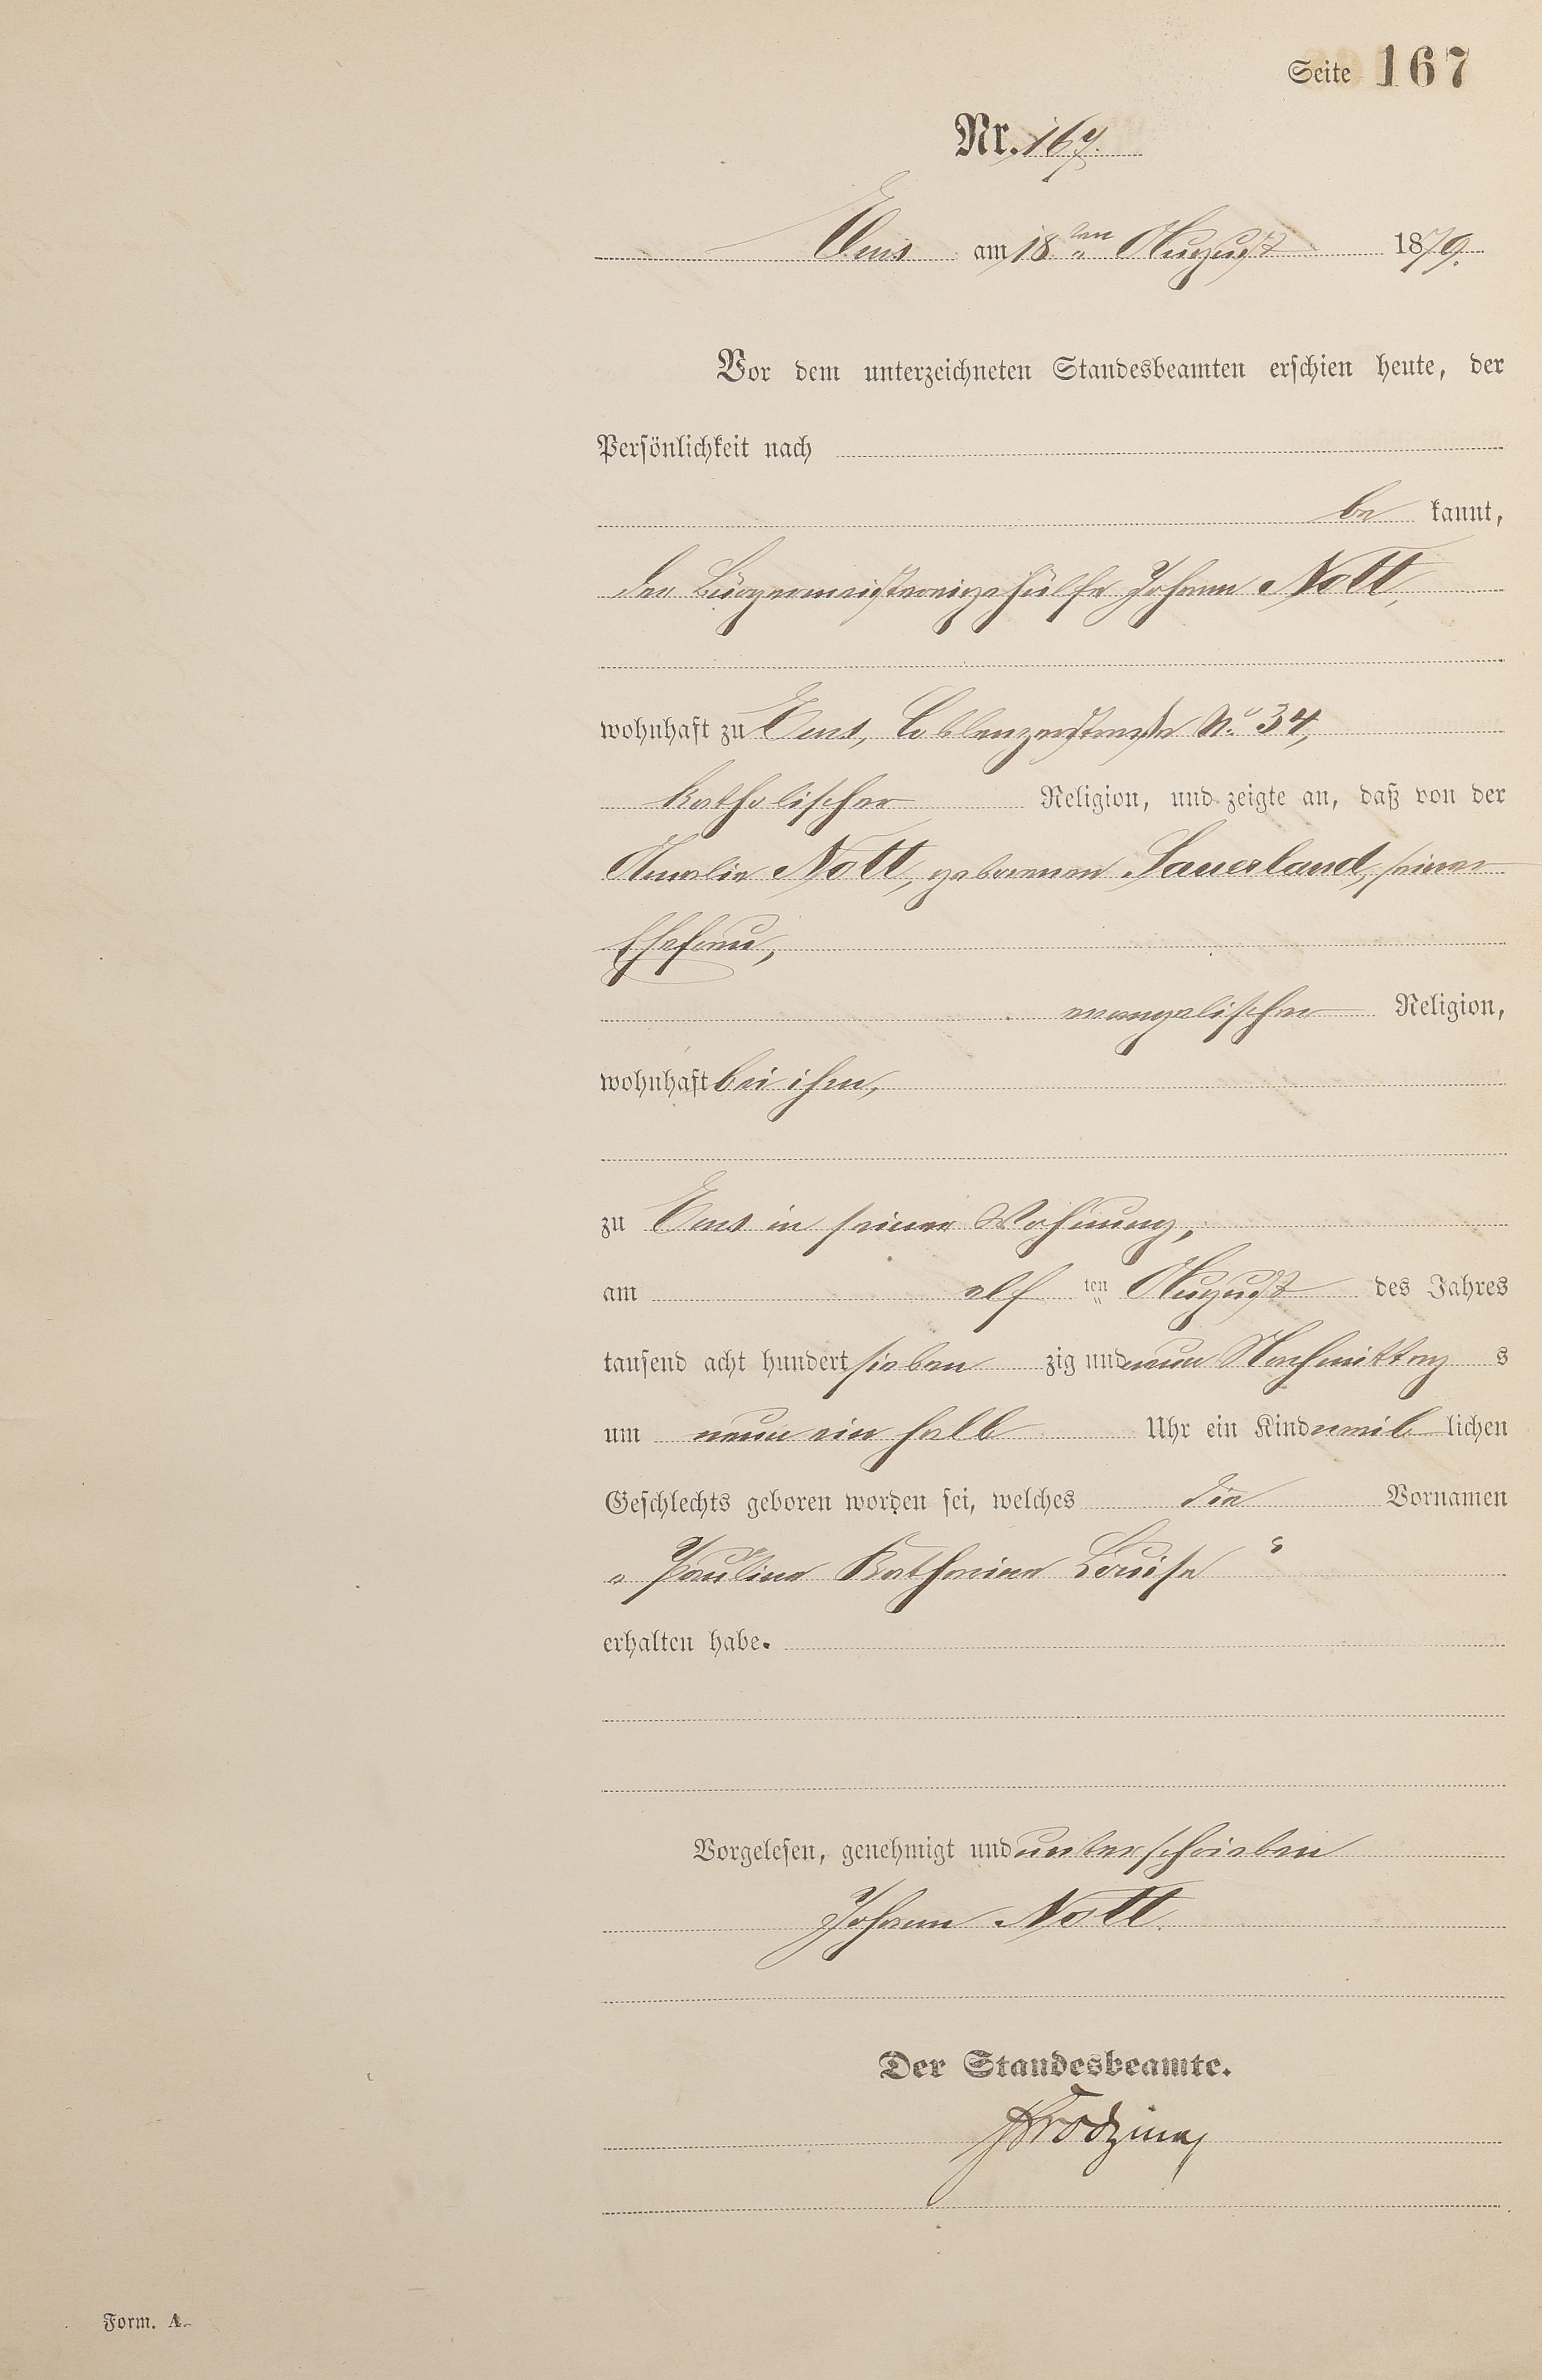 Seite 167
Nr. 167.
Ems am 18ten August 1879.
Vor dem unterzeichneten Standesbeamten erschien heute, der
Persönlichkeit nach
be kannt,
der Bürgermeistereigehülfe Johann Nott,
wohnhaft zu Ems, Coblenzerstraße No. 34,
katholischer Religion, und zeigte an, daß von der
Amalie Nott, geborenen Sauerland, seiner
Ehefrau,
evangelischer Religion,
wohnhaft bei ihm,
zu Ems in seiner Wohnung,
am elf ten August des Jahres
tausend acht hundert sieben zig und neun Nachmittag s
um neun ein halb Uhr ein Kind weib lichen
Geschlechts geboren worden sei, welches die Vornamen
„Pauline Katharina Louise“
erhalten habe.
Vorgelesen, genehmigt und unterschrieben
Johann Nott.
Der Standesbeamte.
Form. A.